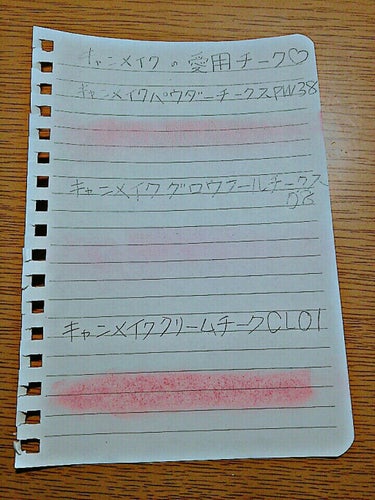 キャンメイクの愛用チーク♡
キャンメイクパウダーチークスPW38
キャンメイクグロウフールチークス
08
キャンメイククリームチークCL01